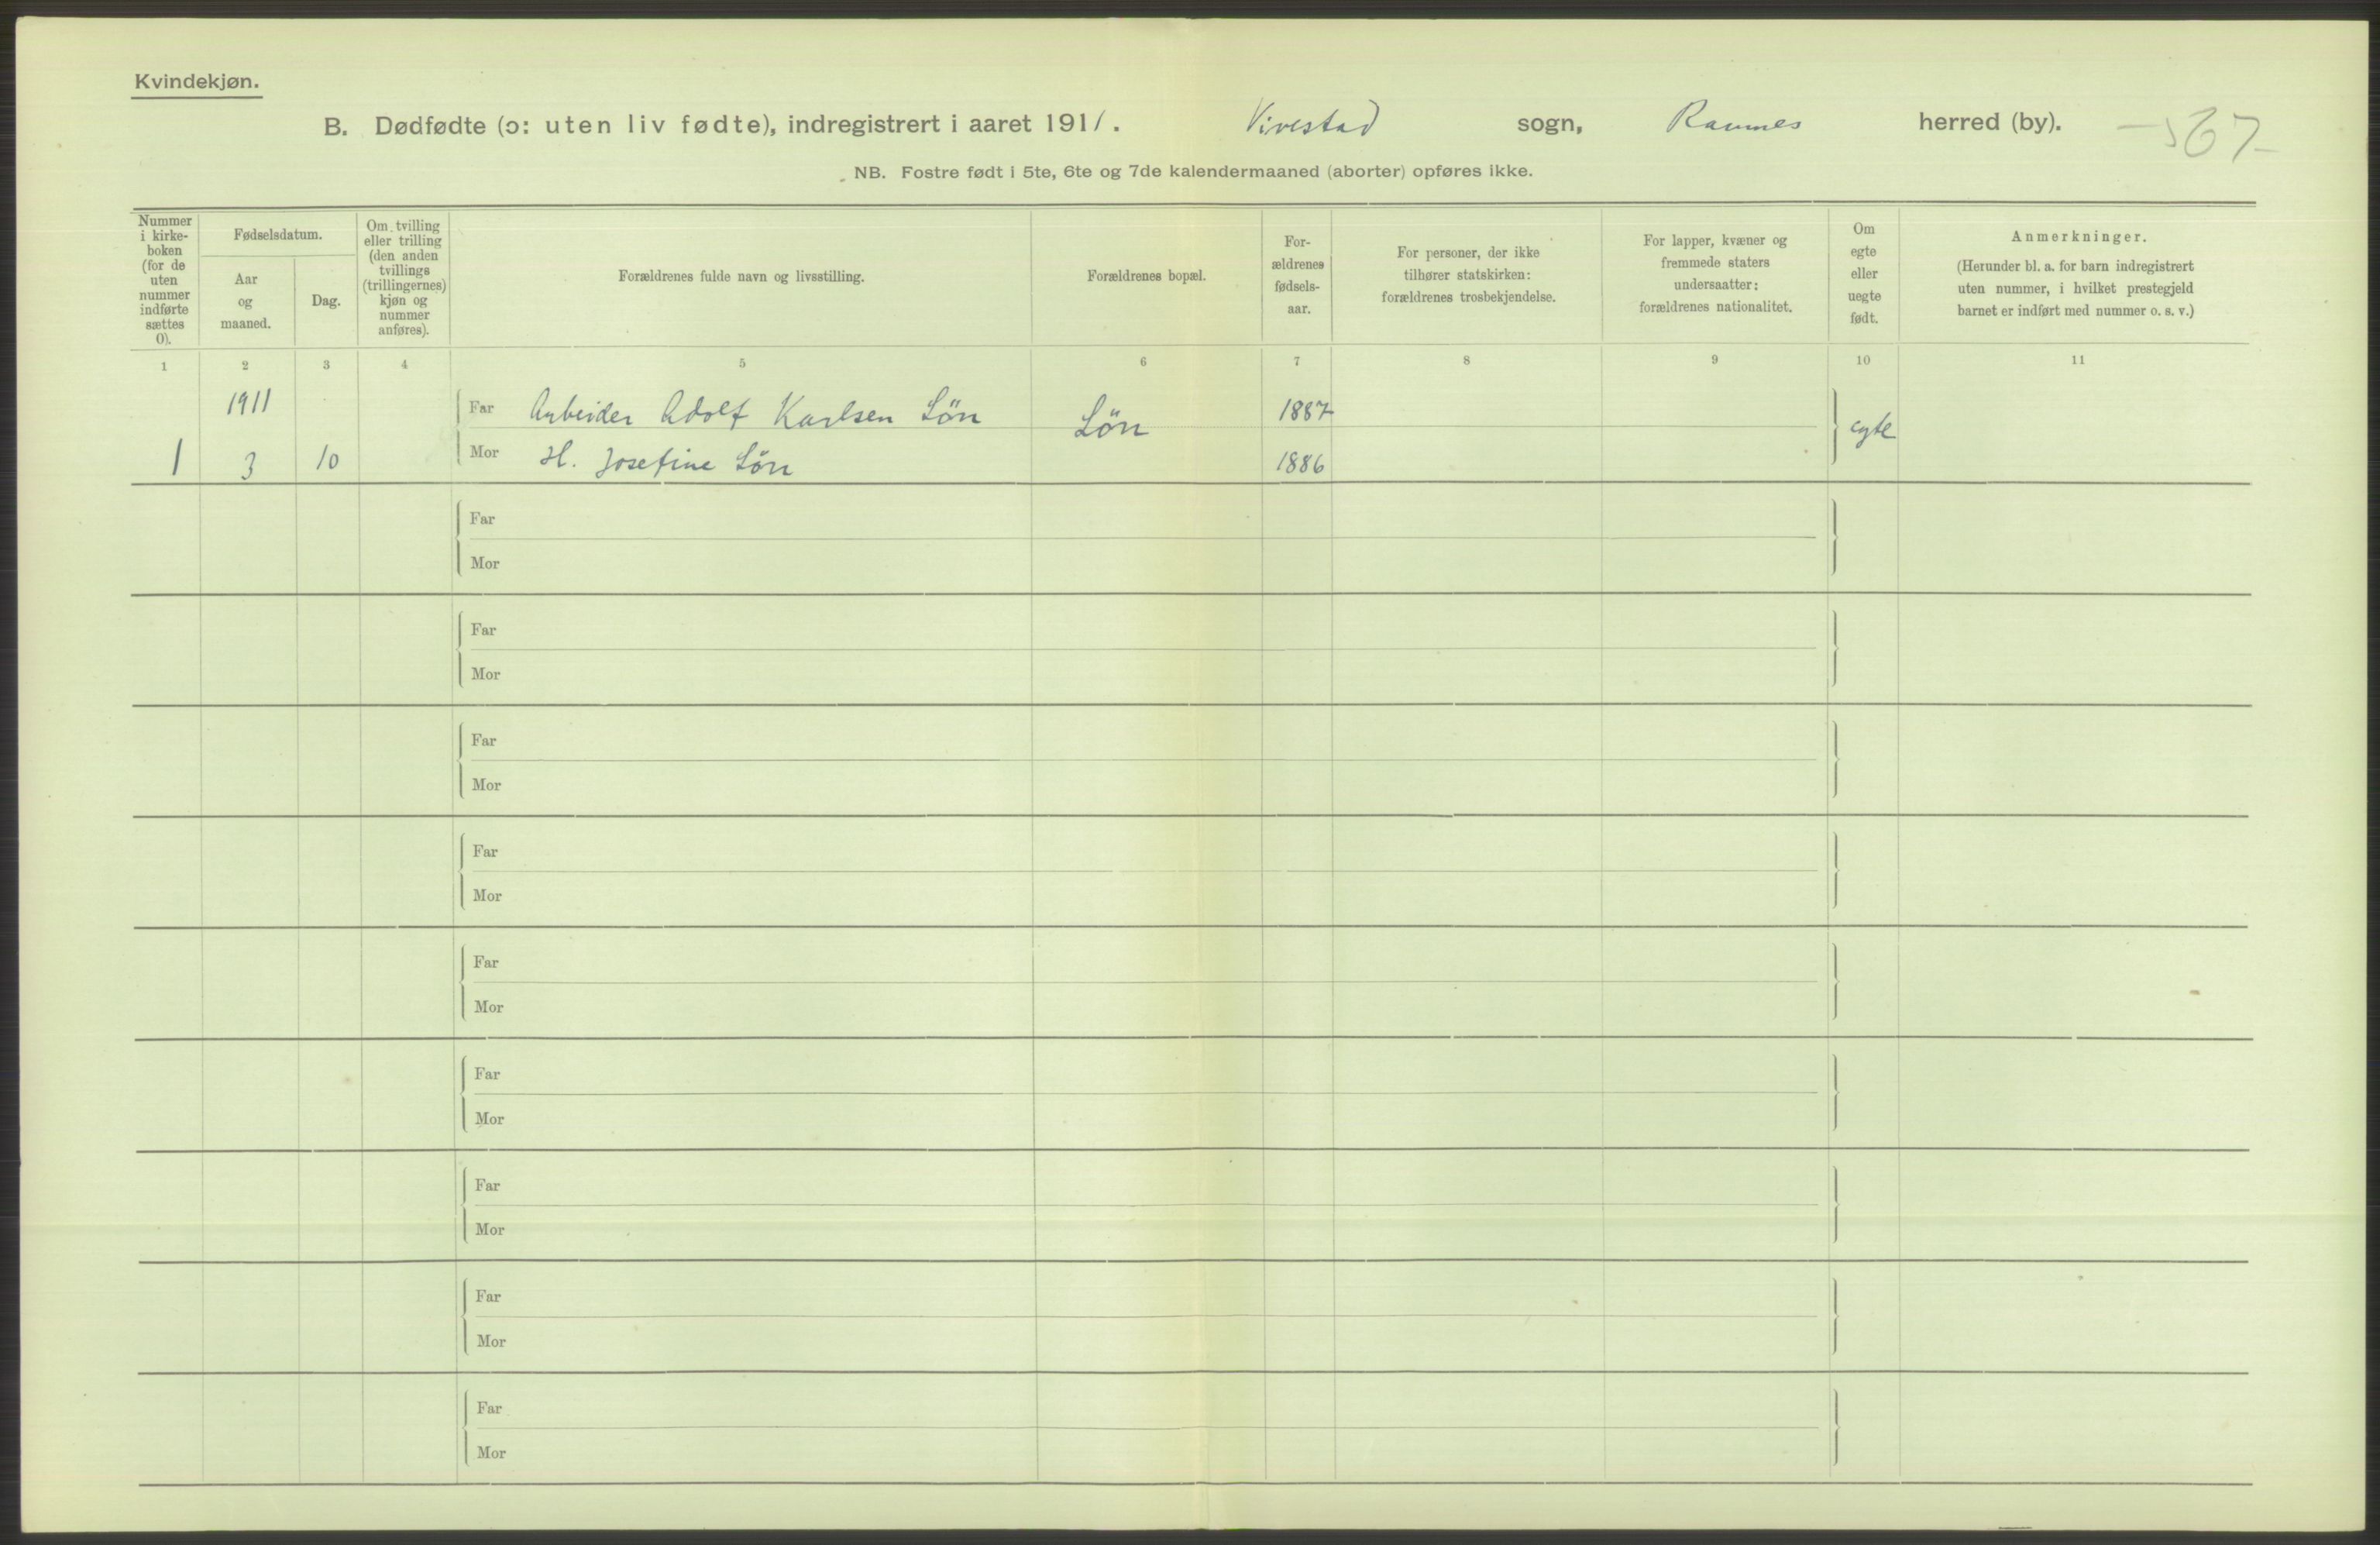 Kvindekjøn.
B. Dødfødte (ɔ: uten liv fødte), indregistrert i aaret 1911. Vivestad sogn, Ramnes herred (by). 567
NB. Fostre født i 5te, 6te og 7de kalendermaaned (aborter) opføres ikke.
Nummer
i kirke-
boken
(for de
uten
nummer
indførte
sættes
0).
Fødselsdatum.
Aar
og
maaned.
Dag.
Om tvilling
eller trilling
(den anden
tvillings
(trillingernes)
kjøn og
nummer
anføres).
Forældrenes fulde navn og livsstilling.
Forældrenes bopæl.
For-
ældrenes
fødsels-
aar.
For personer, der ikke
tilhører statskirken:
forældrenes trosbekjendelse.
For lapper, kvæner og
fremmede staters
undersaatter:
forældrenes nationalitet.
Om
egte
eller
uegte
født.
Anmerkninger.
(Herunder bl. a. for barn indregistrert
uten nummer, i hvilket prestegjeld
barnet er indført med nummer o. s. v.)
1 2 3 4 5 6 7 8 9 10 11
1911 Far Arbeider Adolf Karlsen Løn Løn 1887 egte
1 3 10 Mor H. Josefine Løn 1886
Far
Mor
Far
Mor
Far
Mor
Far
Mor
Far
Mor
Far
Mor
Far
Mor
Far
Mor
Far
Mor